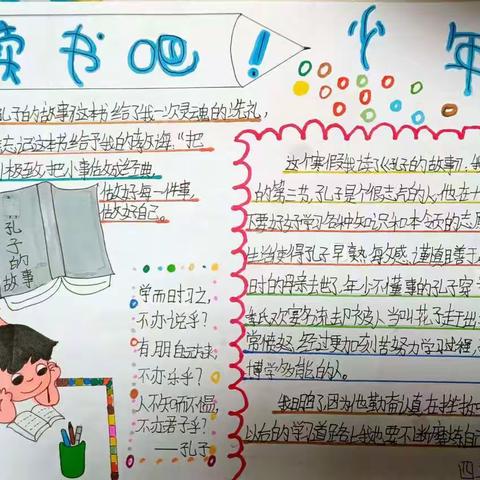 读书吧！少年
孔子的故事》这本书给了我一次灵魂的洗礼,
志记这本书给予我的教诲："把
极致,把小事做成经典,
做好每一件事,
做好自己。
孔子的故事
学而时习之,
不亦说乎?
有朋自远方来,
不亦乐乎?
人不知而不愠,
不亦君子乎?
——孔子
这个寒假我读了《孔子的故事》;
的第三节,孔子是个很志气的人,他在十
不要好好学习各种知识和本领的志愿
生活使得孔子早熟,敏感、谨慎善于
时的母亲去世了,年少不懂事的孔子穿
季氏欢宴名流,却被人当叫花子走于出
常愤奴,经过更加刻苦努力学习过程,
博学多能的人。
我明白了,因为他勤奋认真在挫折
以后的学习道路上我也要不断磨练自己
四